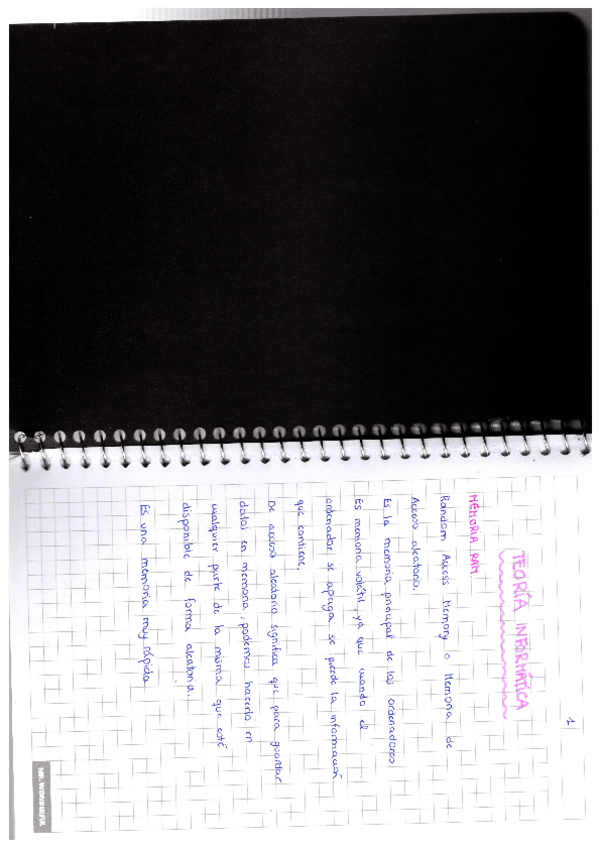 1
TEORÍA INFORMÁTICA
MEMORIA RAM
Random Access Memory o Memoria de
Acceso aleatorio.
Es la memoria principal de los ordenadores.
Es memoria volátil, ya que cuando el
ordenador se apaga se pierde la información
que contiene.
De acceso aleatorio significa que para guardar
datos en memoria, podemos hacerlo en
cualquier parte de la misma que esté
disponible de forma aleatoria.
Es una memoria muy rápida.
MR. WONDERFUL